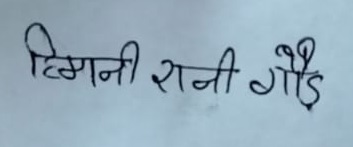 हिमानी रानी गौड़